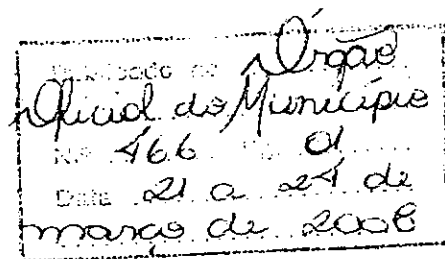 Publicado no Órgão
Oficial do Município
N.º 466 01
Data 21 a 24 de
março de 2006